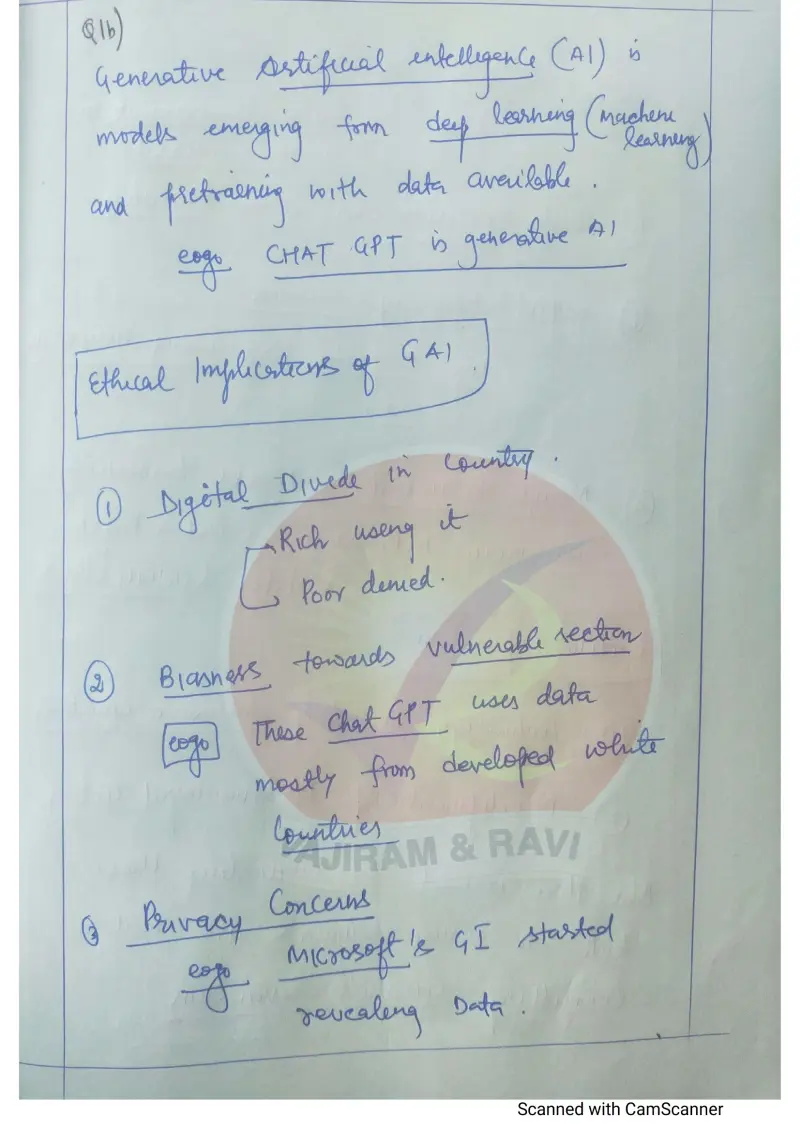 Q1b)
Generative Artificial intelligence (AI) is
models emerging from deep learning (machine learning)
and pretraining with data available.
e.g. CHAT GPT is generative AI
Ethical Implications of GAI.
① Digital Divide in country.
Rich using it
Poor denied.
② Biasness towards vulnerable section
e.g. These Chat GPT uses data
mostly from developed white
Countries
VAJIRAM & RAVI
③ Privacy Concerns
e.g. Microsoft's GI started
revealing Data.
Scanned with CamScanner